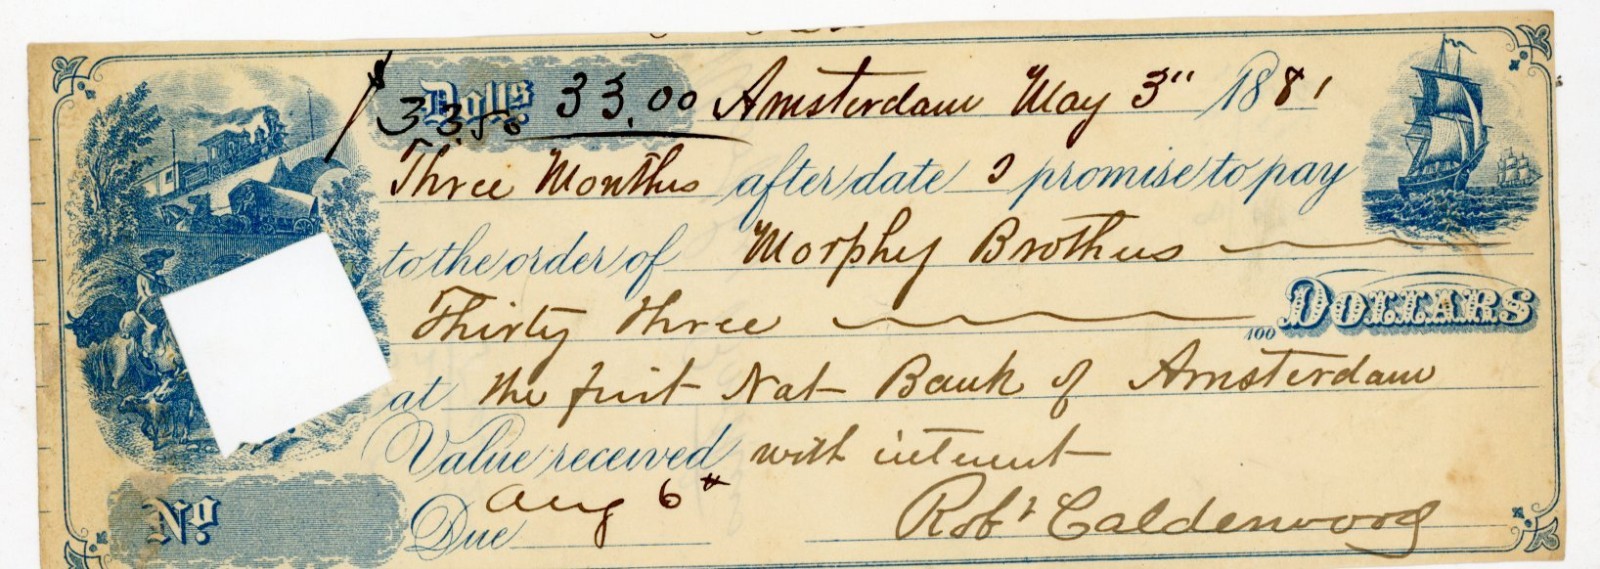 $ 33 50 Dolls 33.00 Amsterdam May 3" 1881
Three Months after date I promise to pay
to the order of Morphy Brothers
Thirty Three 100 DOLLARS
at the first Nat Bank of Amsterdam
Value received with interest
No. Due Aug 6th Robt Caldenwood